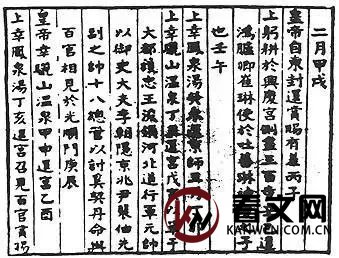 二月甲戌
皇帝自東封還賞賜有差丙子
上躬耕於興慶宮側盡三百步
鴻臚卿崔琳使於吐蕃琳
也壬午
上幸鳳泉湯癸未還京師
上幸驪山溫泉丁亥還宮戊子
大都護忠王浚領河北道行軍元帥
以御史大夫李朝隱京兆尹裴伷先
副之帥十八總管以討奚契丹命與
百官相見於光順門庚辰
皇帝幸驪山溫泉甲申還宮乙酉
上幸鳳泉湯丁亥還宮召見百官賞賜
KW
看文网